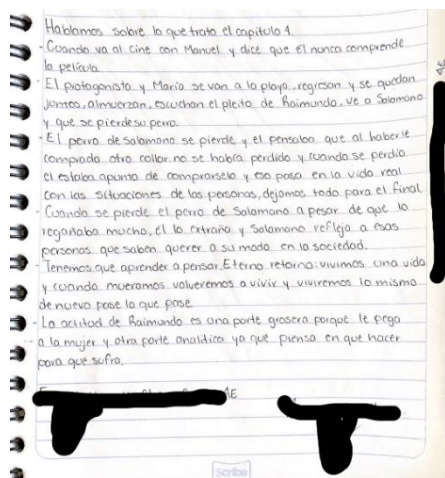 Hablamos sobre lo que trato el capitulo 4.
- Cuando va al cine con Manuel y dice que el nunca comprende
la pelicula.
- El protagonista y Maria se van a la playa, regresan y se quedan
juntos, almuerzan, escuchan el pleito de Raimundo, ve a Salamano
y que se pierde su perro.
- El perro de Salamano se pierde y el pensaba que al haberle
comprado otro collar no se habria perdido y cuando se perdio
el estaba apunto de comprarselo y eso pasa en la vida real
con las situaciones de las personas, dejamos todo para el final.
- Cuando se pierde el perro de Salamano a pesar de que lo
regañaba mucho, el lo extraña y Salamano refleja a esas
personas que saben querer a su modo en la sociedad.
- Tenemos que aprender a pensar. Eterno retorno: vivimos una vida
y cuando muramos volveremos a vivir y viviremos lo mismo
de nuevo pase lo que pase.
- La actitud de Raimundo es una parte grosera porque le pega
a la mujer y otra parte analitica ya que piensa en que hacer
para que sufra.
4E
4E
Scribe